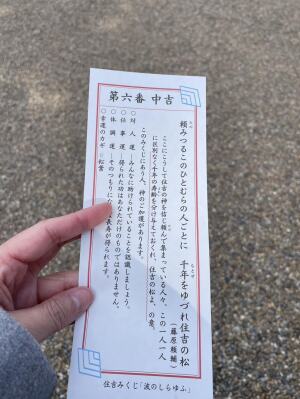 第六番 中吉
頼みつるこのひとむらの人ごとに 千年をゆづれ住吉の松
ちとせ
(藤原頼輔)
ここにこうして住吉の神を信じ頼んで集まっている人々、この一人一人
に区別なく千年の寿齢を分け与えておくれ、住吉の松よ、の意。
このみくじにあう人、神のご加護があります。
○対人運―みんなに助けられていることを認識しましょう。
○仕事運―得られた功はあなただけのものではありません。
○体調運―そのつもりにな
長寿が得られます。
○幸運のカギ☆松葉
住吉みくじ「波のしらゆふ」